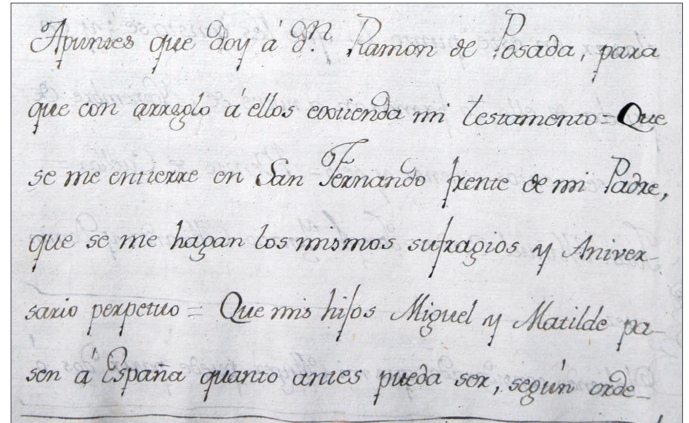 Apuntes que doy á Dn. Ramon de Posada, para
que con arreglo á ellos extienda mi testamento = Que
se me entierre en San Fernando frente de mi Padre,
que se me hagan los mismos sufragios y Aniver-
sario perpetuo = Que mis hijos Miguel y Matilde pa-
sen á España quanto antes pueda ser, según orde-